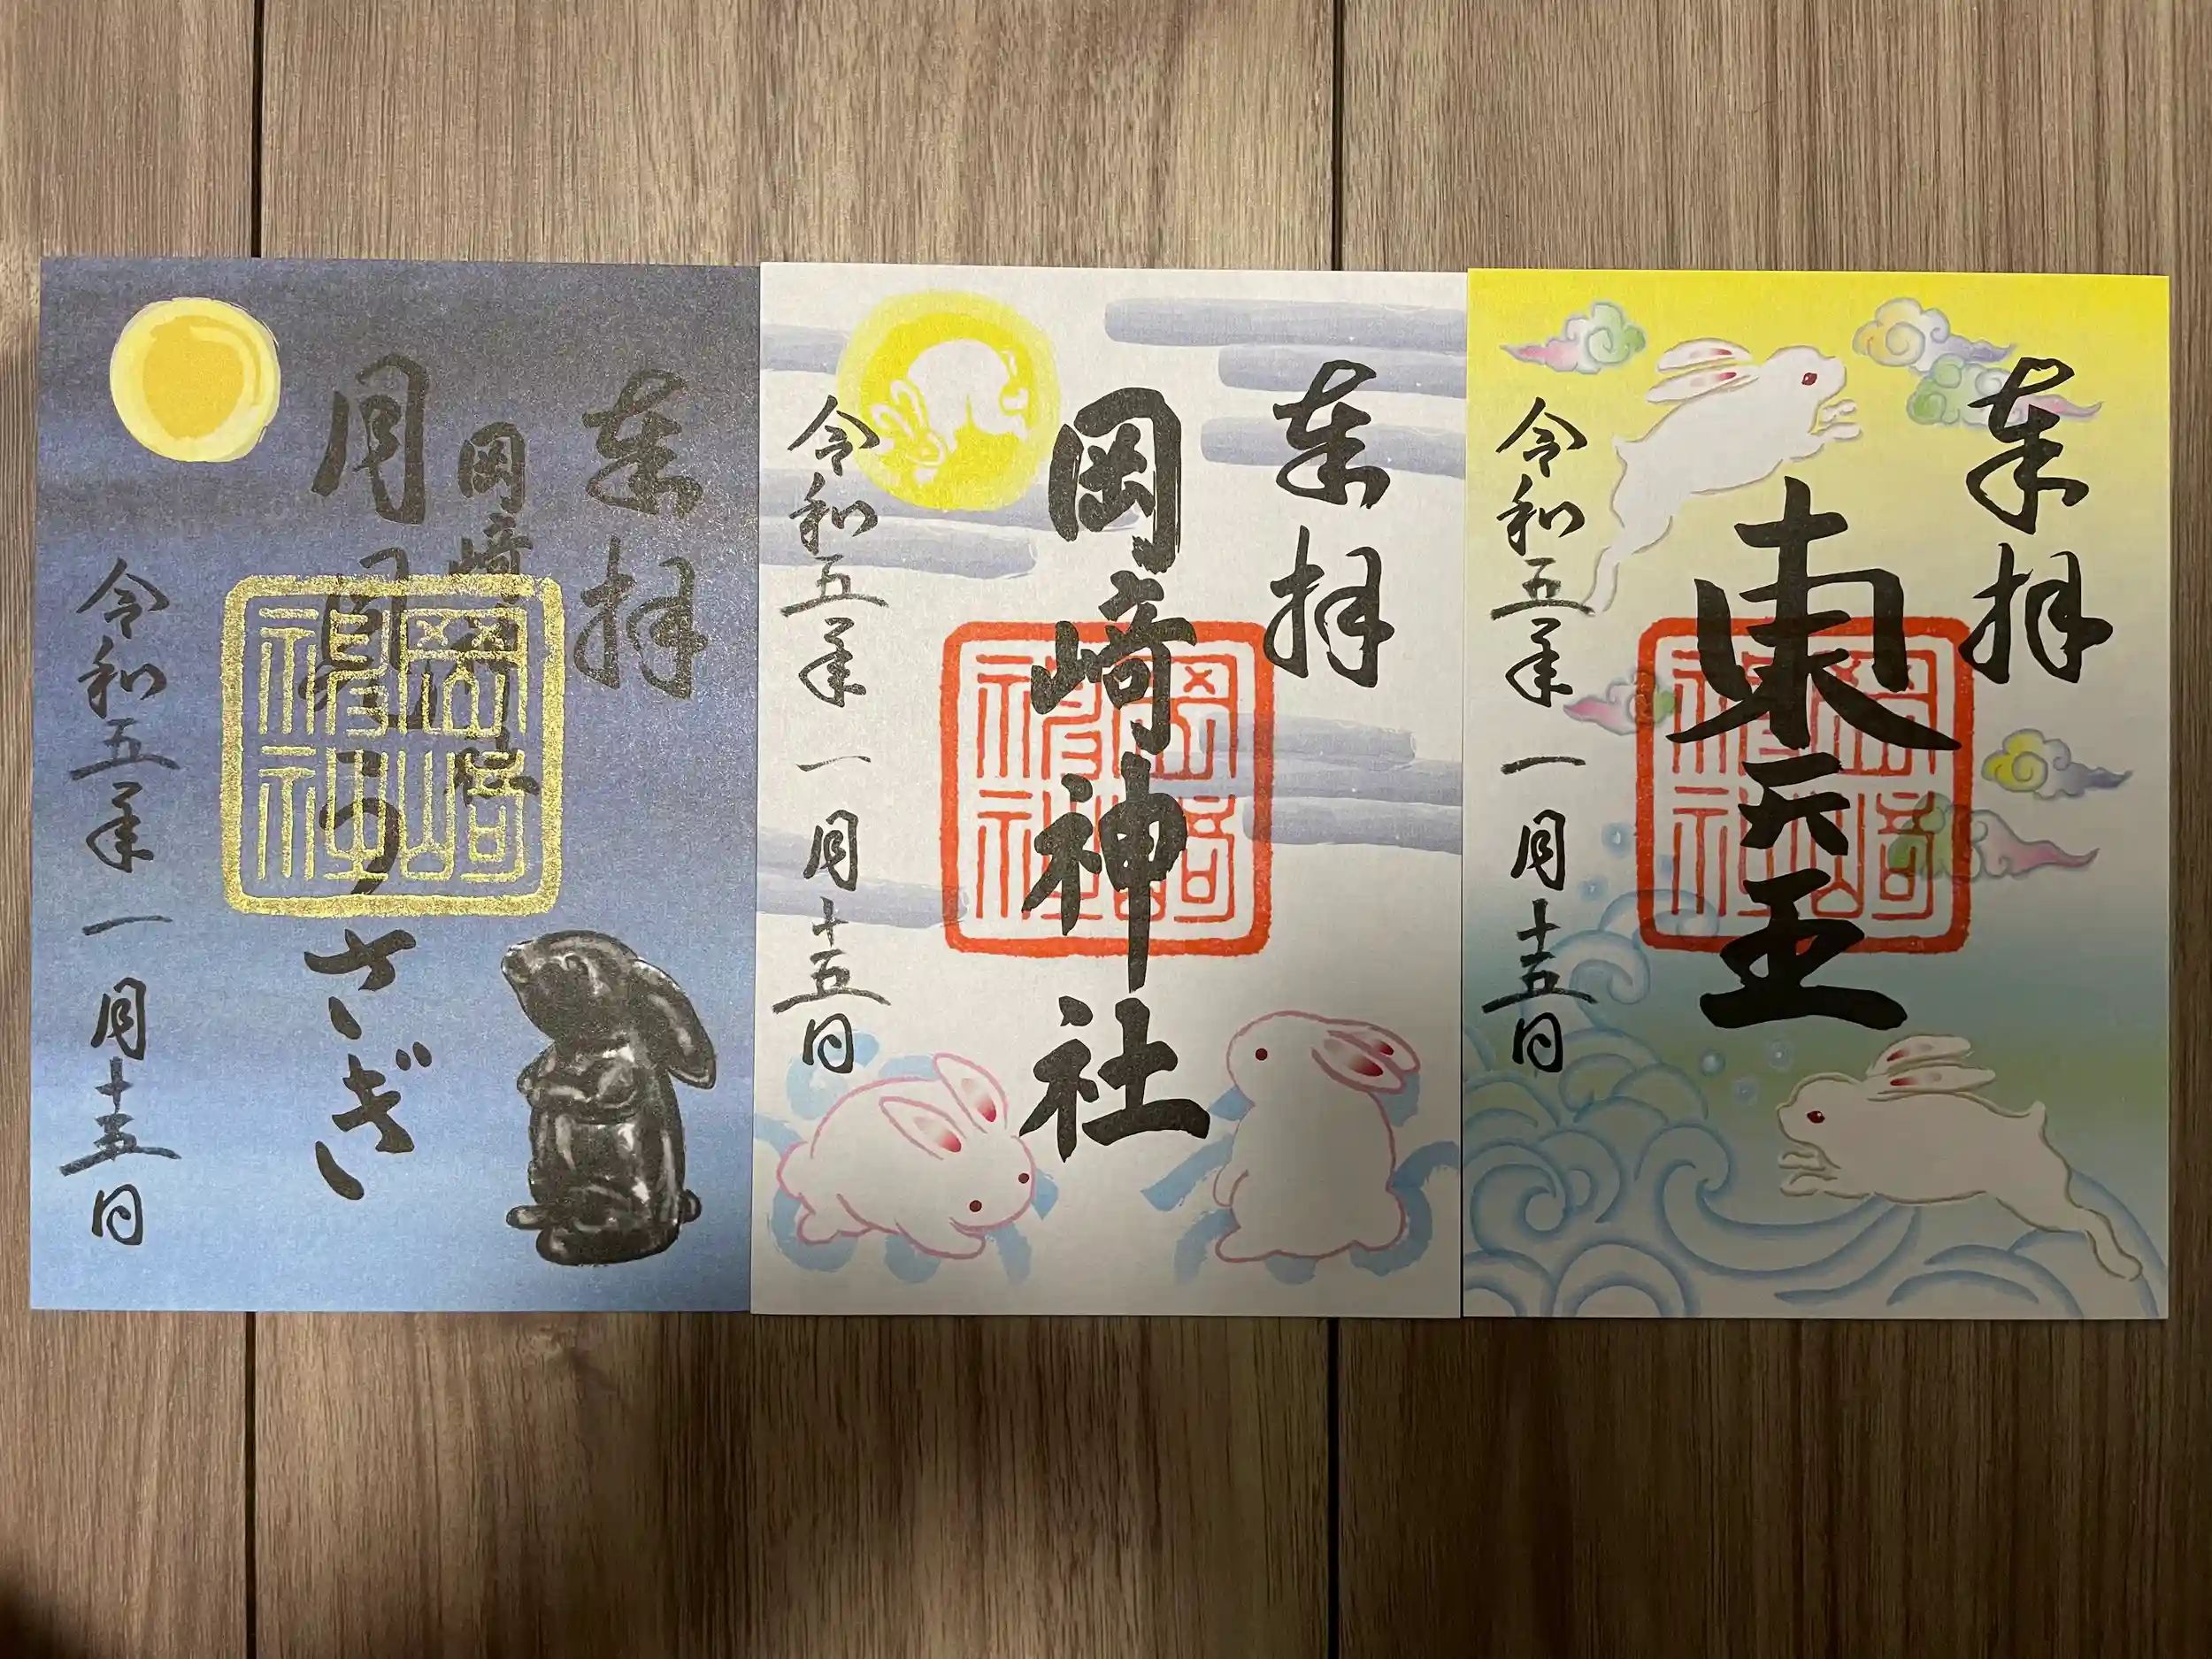 奉拝
岡崎神社
月見うさぎ
岡崎神社
令和五年一月十五日
奉拝
岡崎神社
岡崎神社
令和五年一月十五日
奉拝
東天王
岡崎神社
令和五年一月十五日